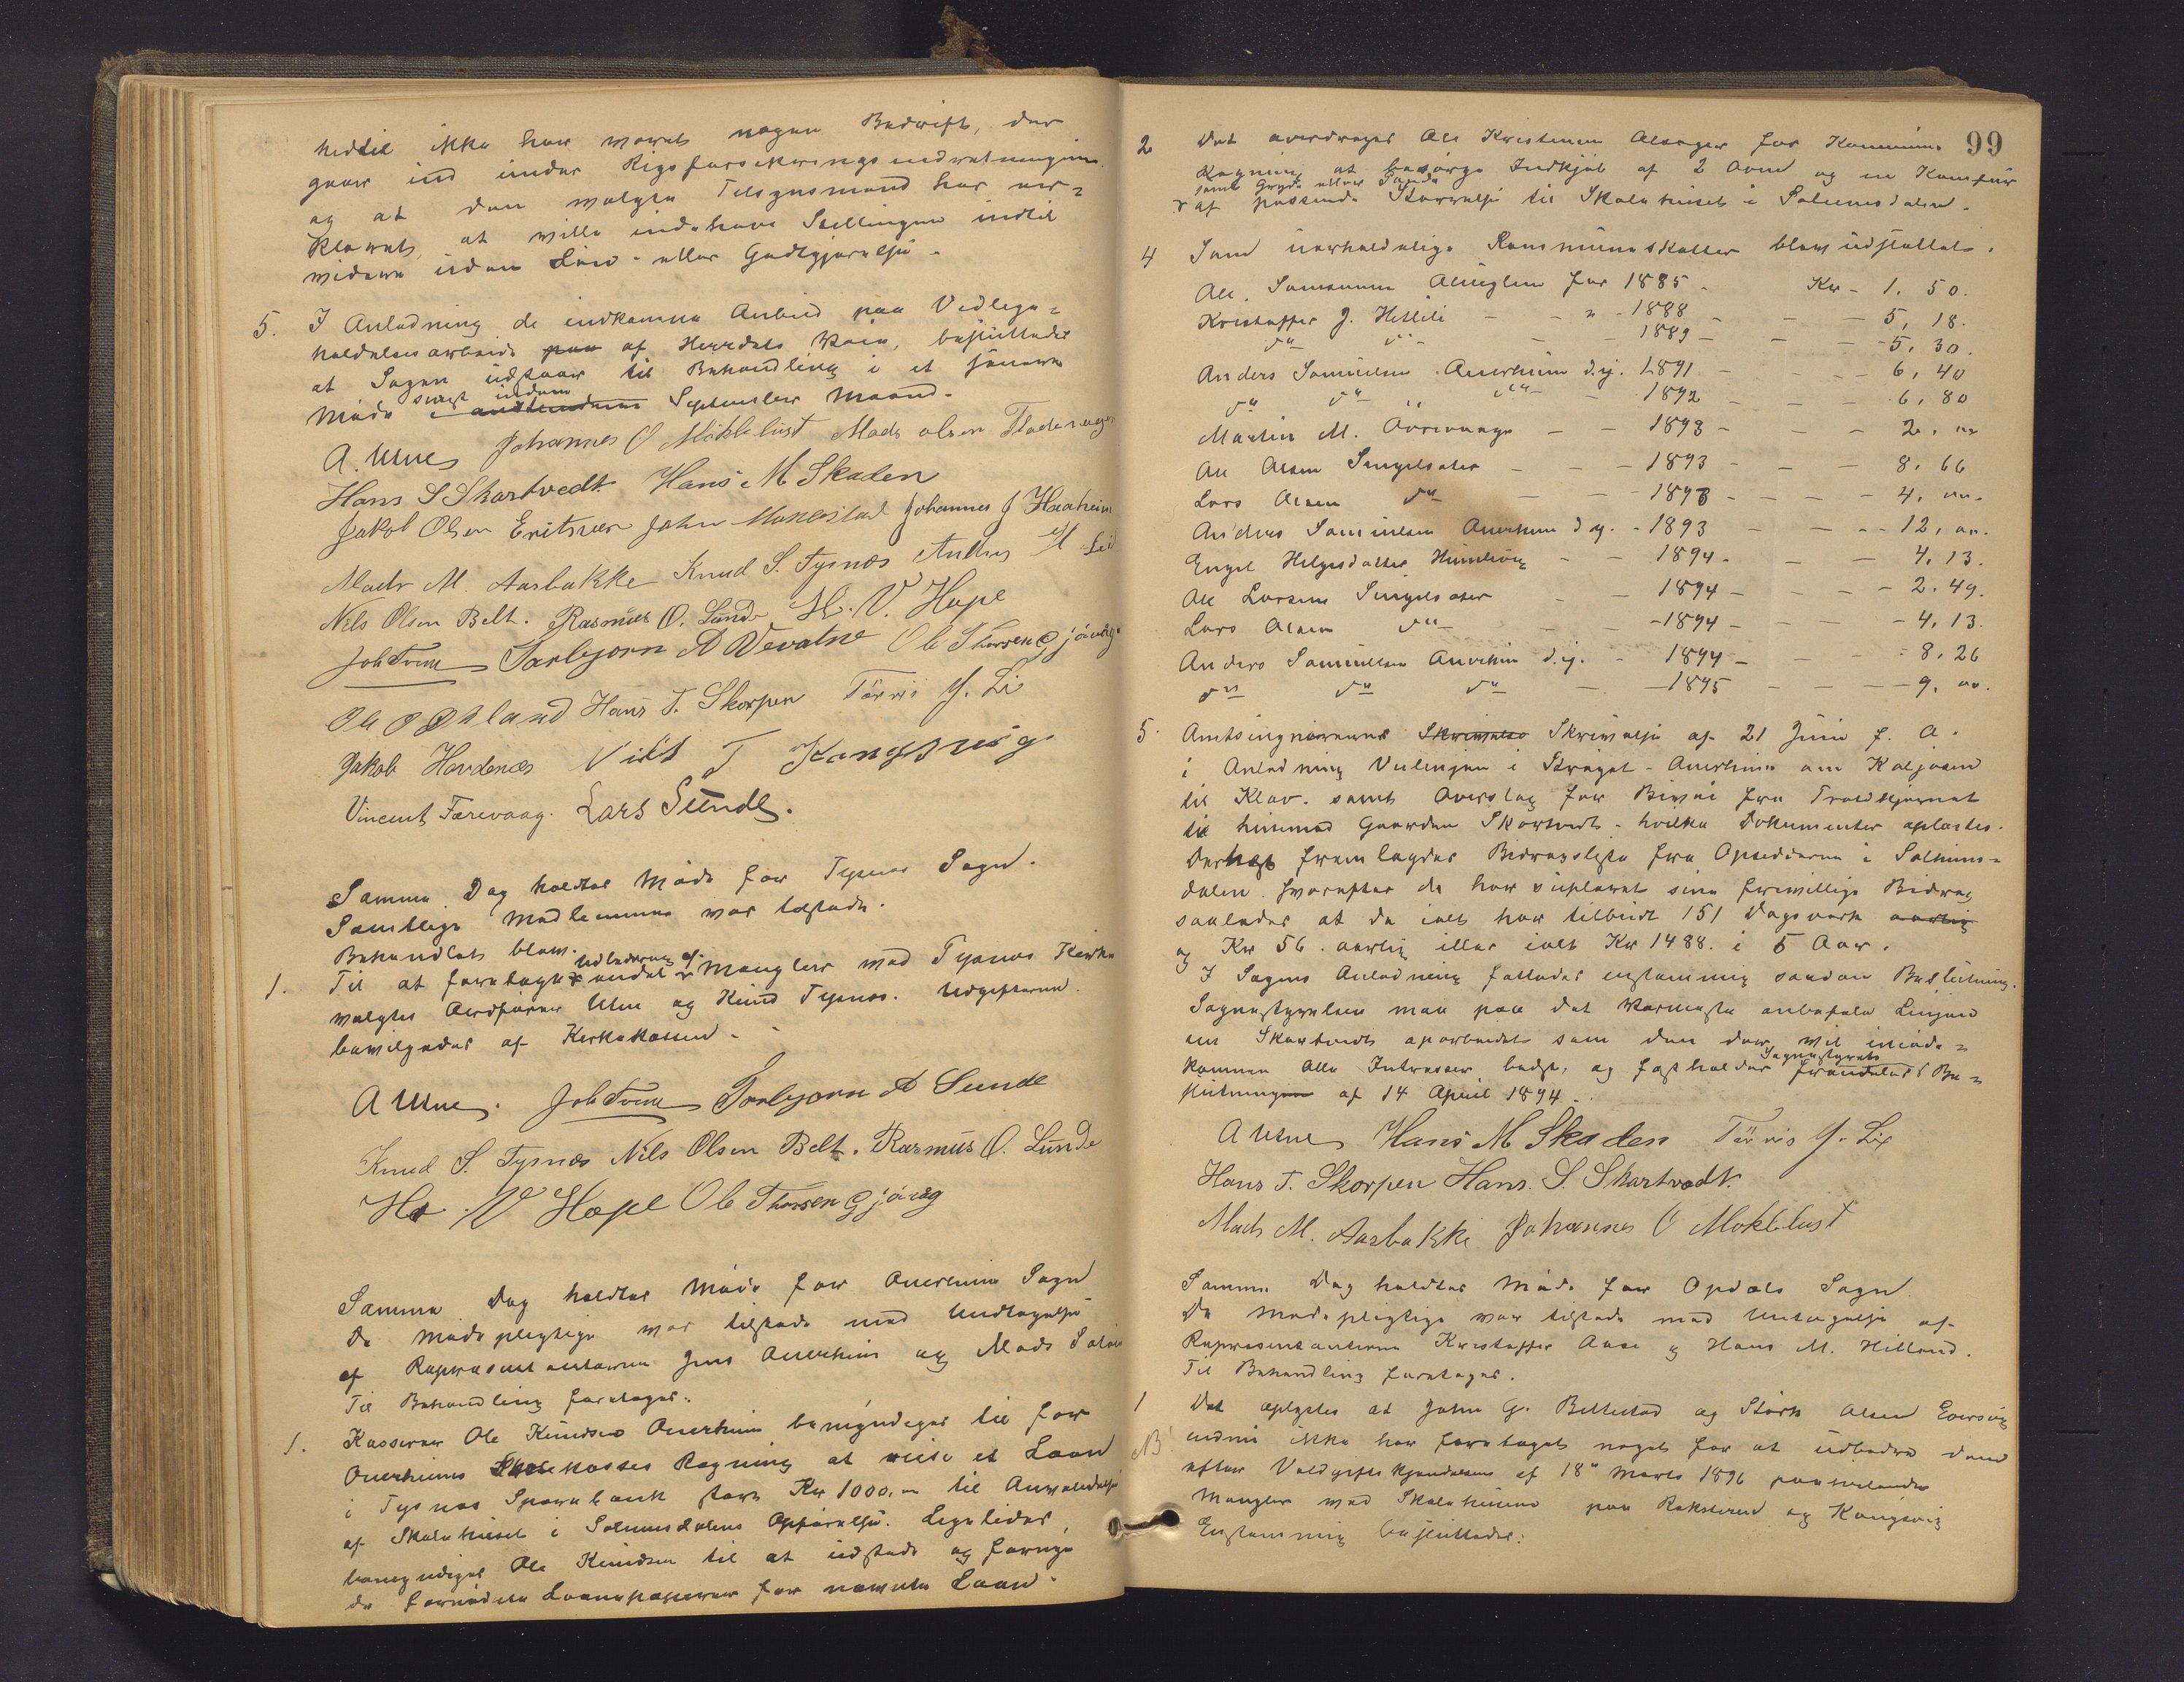 hidtil ikke har været nogen Bedrift, der
gaar ind under Rigsforsikrings indretningen
og at den valgte Tilsynsmand har er=
klæret, at ville indehave Stillingen indtil
videre uden Løn- eller Godtgjørelse -
5. I Anledning de indkomne Anbud paa Vedlige=
holdelsesarbeide paa af Herredets Veie, besluttedes
at Sagen udstaar til Behandling i et senere
Møde senest inden September Maaned.
A. Uhne Johannes O Møkkelust Mads olsen Fladervaagen
Hans S Skartvedt Hans M Skaden
Jakob Olsen Johannes J Haaheim
Mads M. Aarbakke Knud S. Tysnæs M Lid
Nils Olsen Belt. Rasmus O. Lunde H. V. Hope
Torbjørn A Vevatne Ole Thorsen Gjøvåg
Ole O Øpland Hans T. Skorpen Tørris J. Li
Jakob Hovdenæs T
Vincent Færevaag. Lars Sunde.
Samme Dag holdtes Møde for Tysnes Sogn.
Samtlige Medlemmer var tilstede.
Behandlet blev.
1. Til at foretage Udbedring af Mangler ved Tysnes Kirke
valgtes Ordføreren Uhne og Knud Tysnæs. Udgifterne
bevilgedes af Kirkekassen -
A Uhne. Torbjørn A Sunde
Knud S. Tysnæs Nils Olsen Belt. Rasmus O. Lunde
H. V Hope Ole Thorsen Gjøvåg
Samme Dag holdtes Møde for Onerheims Sogn
De mødepligtige var tilstede med Undtagelse
af Repræsentanterne Jens Onerheim og Mads
Til Behandling foretoges:
1. Kasserer Ole Knudsen Onerheim bemyndiges til for
Onerheims Skolekasses Regning at reise et Laan
i Tysnes Sparebank stort Kr 1000,00 til Anvendelse
af Skolehuset i Solemsdalens Opførelse. Ligeledes
bemyndiges Ole Knudsen til at udstede og fornye
de fornødne Laanepapirer for nævnte Laan.
99
2 Det overdroges Ole Kristensen for Kommunens
Regning at besørge Indkjøb af 2 Ovne og en Komfur
samt Gryde eller Pande
af passende Størrelse til Skolehuset i Solemsdalen.
4 Som uerholdelige Kommuneskatter blev udsluttet.
Ole for 1885 - Kr - 1. 50.
Kristoffer J. - - " - 1888 - - - 5, 18.
do do - - 1889 - - - 5, 30.
Anders Samuelsen Onerheim d.y. 1891 - - - 6, 40
do do do - 1892 - - - 6, 80
Martin M. - - 1893 - - - 2, 00
Ole Olsen Singelsater - - - 1893 - - - 8, 66
Lars Olsen do - - - 1893 - - - 4, 00.
Anders Samuelsen Onerheim d y. - 1893 - - - 12, 00.
Engel Helgesdatter - - 1894 - - 4, 13.
Ole Larsen Singelsater - - 1894 - - - 2. 49.
Lars Olsen do - - 1894 - - - 4, 13.
Anders Samuelsen Onerheim d.y. - 1894 - - - 8, 26
do do do - 1895 - - - 9, 00.
5. Amtsingeniørernes Skrivelse Skrivelse af 21 Juni f. A.
i Anledning Veilinjen i Strøget - Onerheim om
til samt Overslag for Bivei fra
til Gaarden Skartvedt - hvilke Dokumenter oplæstes.
Derhos fremlagdes Bidragsliste fra Opsidderne i Solheims=
dalen. hvorefter de har supleret sine frivillige Bidrag
saaledes at de ialt har tilbudt 151 Dagsverk aarlig
og Kr 56. aarlig eller ialt Kr 1488. i 5 Aar.
I Sagens Anledning fattedes enstemmig saadan Beslutning.
Sognestyrelsen maa paa det Varmeste anbefale Linjen
om Skartvedt oparbeidet som den der vil imøde=
komme alle Interesser bedst, og fastholder Sognestyrets Be=
slutning af 14 April 1894.
A Uhne Hans M Skaden Tørris J. Li
Hans T. Skorpen Hans. S. Skartvedt.
Mads M. Aarbakke Johannes O Møkkelust
Samme Dag holdtes Møde for Opdals Sogn
De mødepligtige var tilstede med Undtagelse af
Repræsentanterne Kristoffer Aase og Hans M. Hilland.
Til Behandling foretoges.
1 Det oplystes at John G. Bellestad og Størk Olsen
NB endnu ikke har foretaget noget for at udbedre dem
efter Voldgiftskjendelsen af 18de Marts 1896 paahvilende
Mangler ved Skolehusene paa Raksund og Kongsvig
Enstemmig besluttedes: